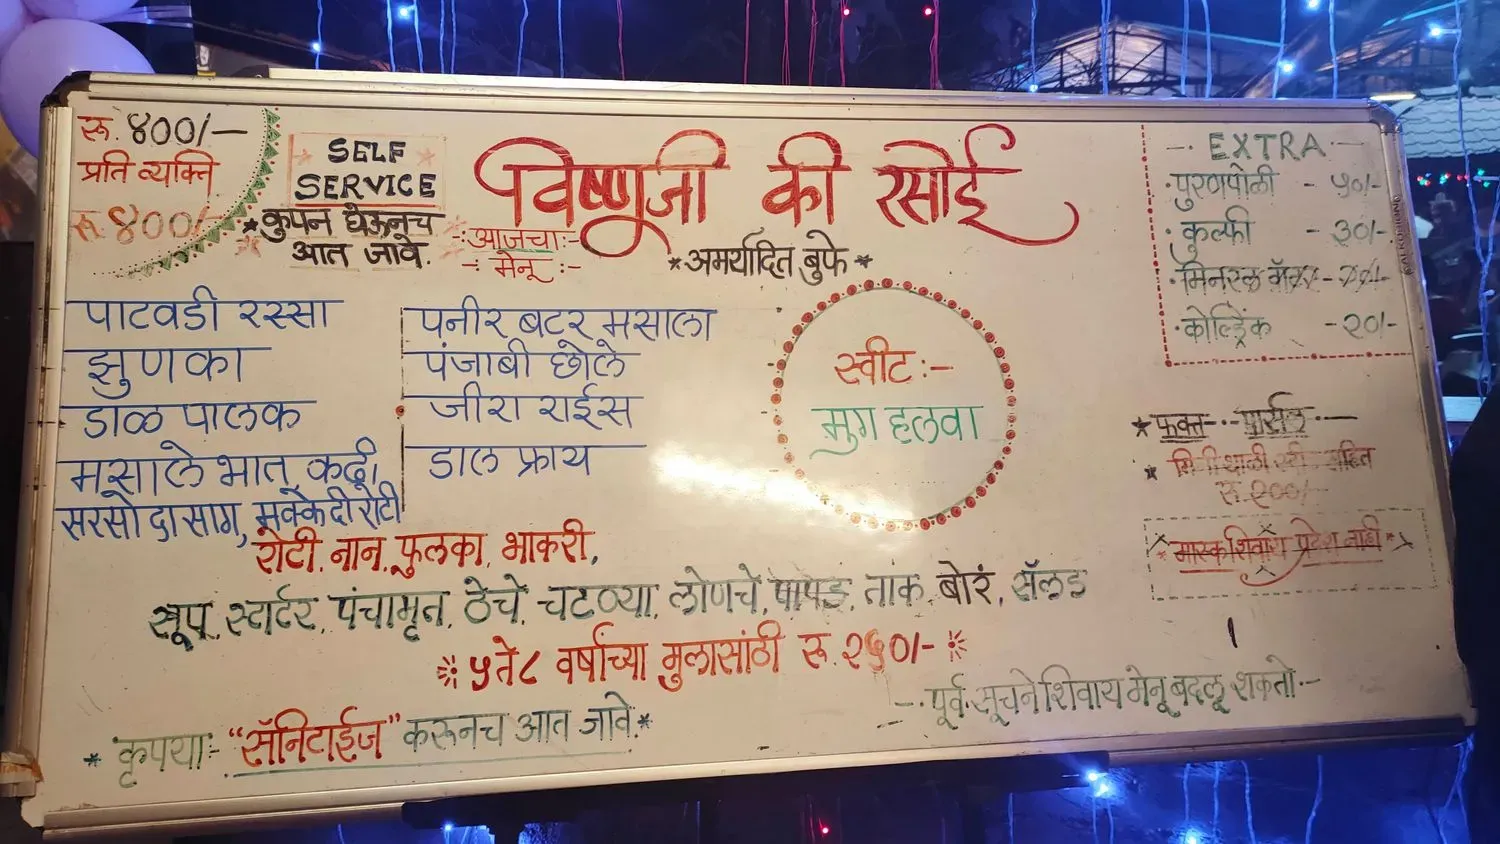 रू. ४००/-
प्रति व्यक्ति
रू. ४००/-
SELF
SERVICE
*कुपन घेऊनच
आत जावे.
विष्णुजी की रसोई
-:आजचा:-
-: मेनू :-
*अमर्यादित बुफे*
पाटवडी रस्सा
झुणका
डाळ पालक
मसाले भात, कढी,
सरसो दा साग, मक्के दी रोटी
पनीर बटर मसाला
पंजाबी छोले
जीरा राईस
डाल फ्राय
रोटी, नान, फुलका, भाकरी,
सूप, स्टार्टर, पंचामृत, ठेचे, चटण्या, लोणचे, पापड, ताक, बोरं, सॅलड
५ ते ८ वर्षाच्या मुलासांठी रू. २५०/-
स्वीट :-
मुग हलवा
-. EXTRA .-
·पुरणपोळी - ५०/-
·कुल्फी - ३०/-
·मिनरल वॉटर -
·कोल्ड्रिंक - २०/-
* फक्त -·- पार्सल ·-
* मिनी थाळी सहित
रू. २००/-
* मास्क शिवाय प्रवेश नाही *
-· पूर्व सूचने शिवाय मेनू बदलू शकतो ·-
* कृपया:- "सॅनिटाईज" करूनच आत जावे.*